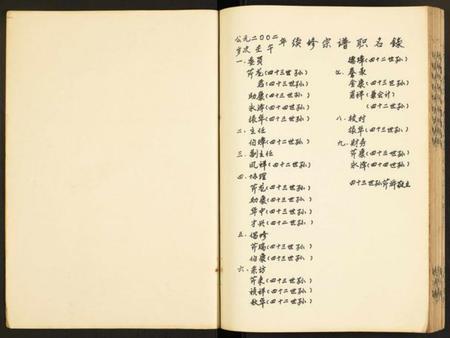 公元二〇〇二年
岁次壬午
续修宗谱职名录
一、委员
芹花(四十三世孙)
君(四十三世孙)
助康(四十三世孙)
永涛(四十四世孙)
振华(四十三世孙)
二、主任
伯璋(四十二世孙)
三、副主任
凤祥(四十二世孙)
四、协理
芹花(四十三世孙)
助康(四十三世孙)
华中(四十三世孙)
才兴(四十二世孙)
五、编修
芹瑞(四十三世孙)
伯康(四十三世孙)
六、采访
芹来(四十三世孙)
祯祥(四十二世孙)
秋华(四十二世孙)
(四十二世孙)
七、誊录
金康(四十三世孙)
祥(兼会计)
(四十二世孙)
八、校对
振华(四十三世孙)
九、财务
芹康(四十三世孙)
永涛(四十四世孙)
四十三世孙芹群敬立